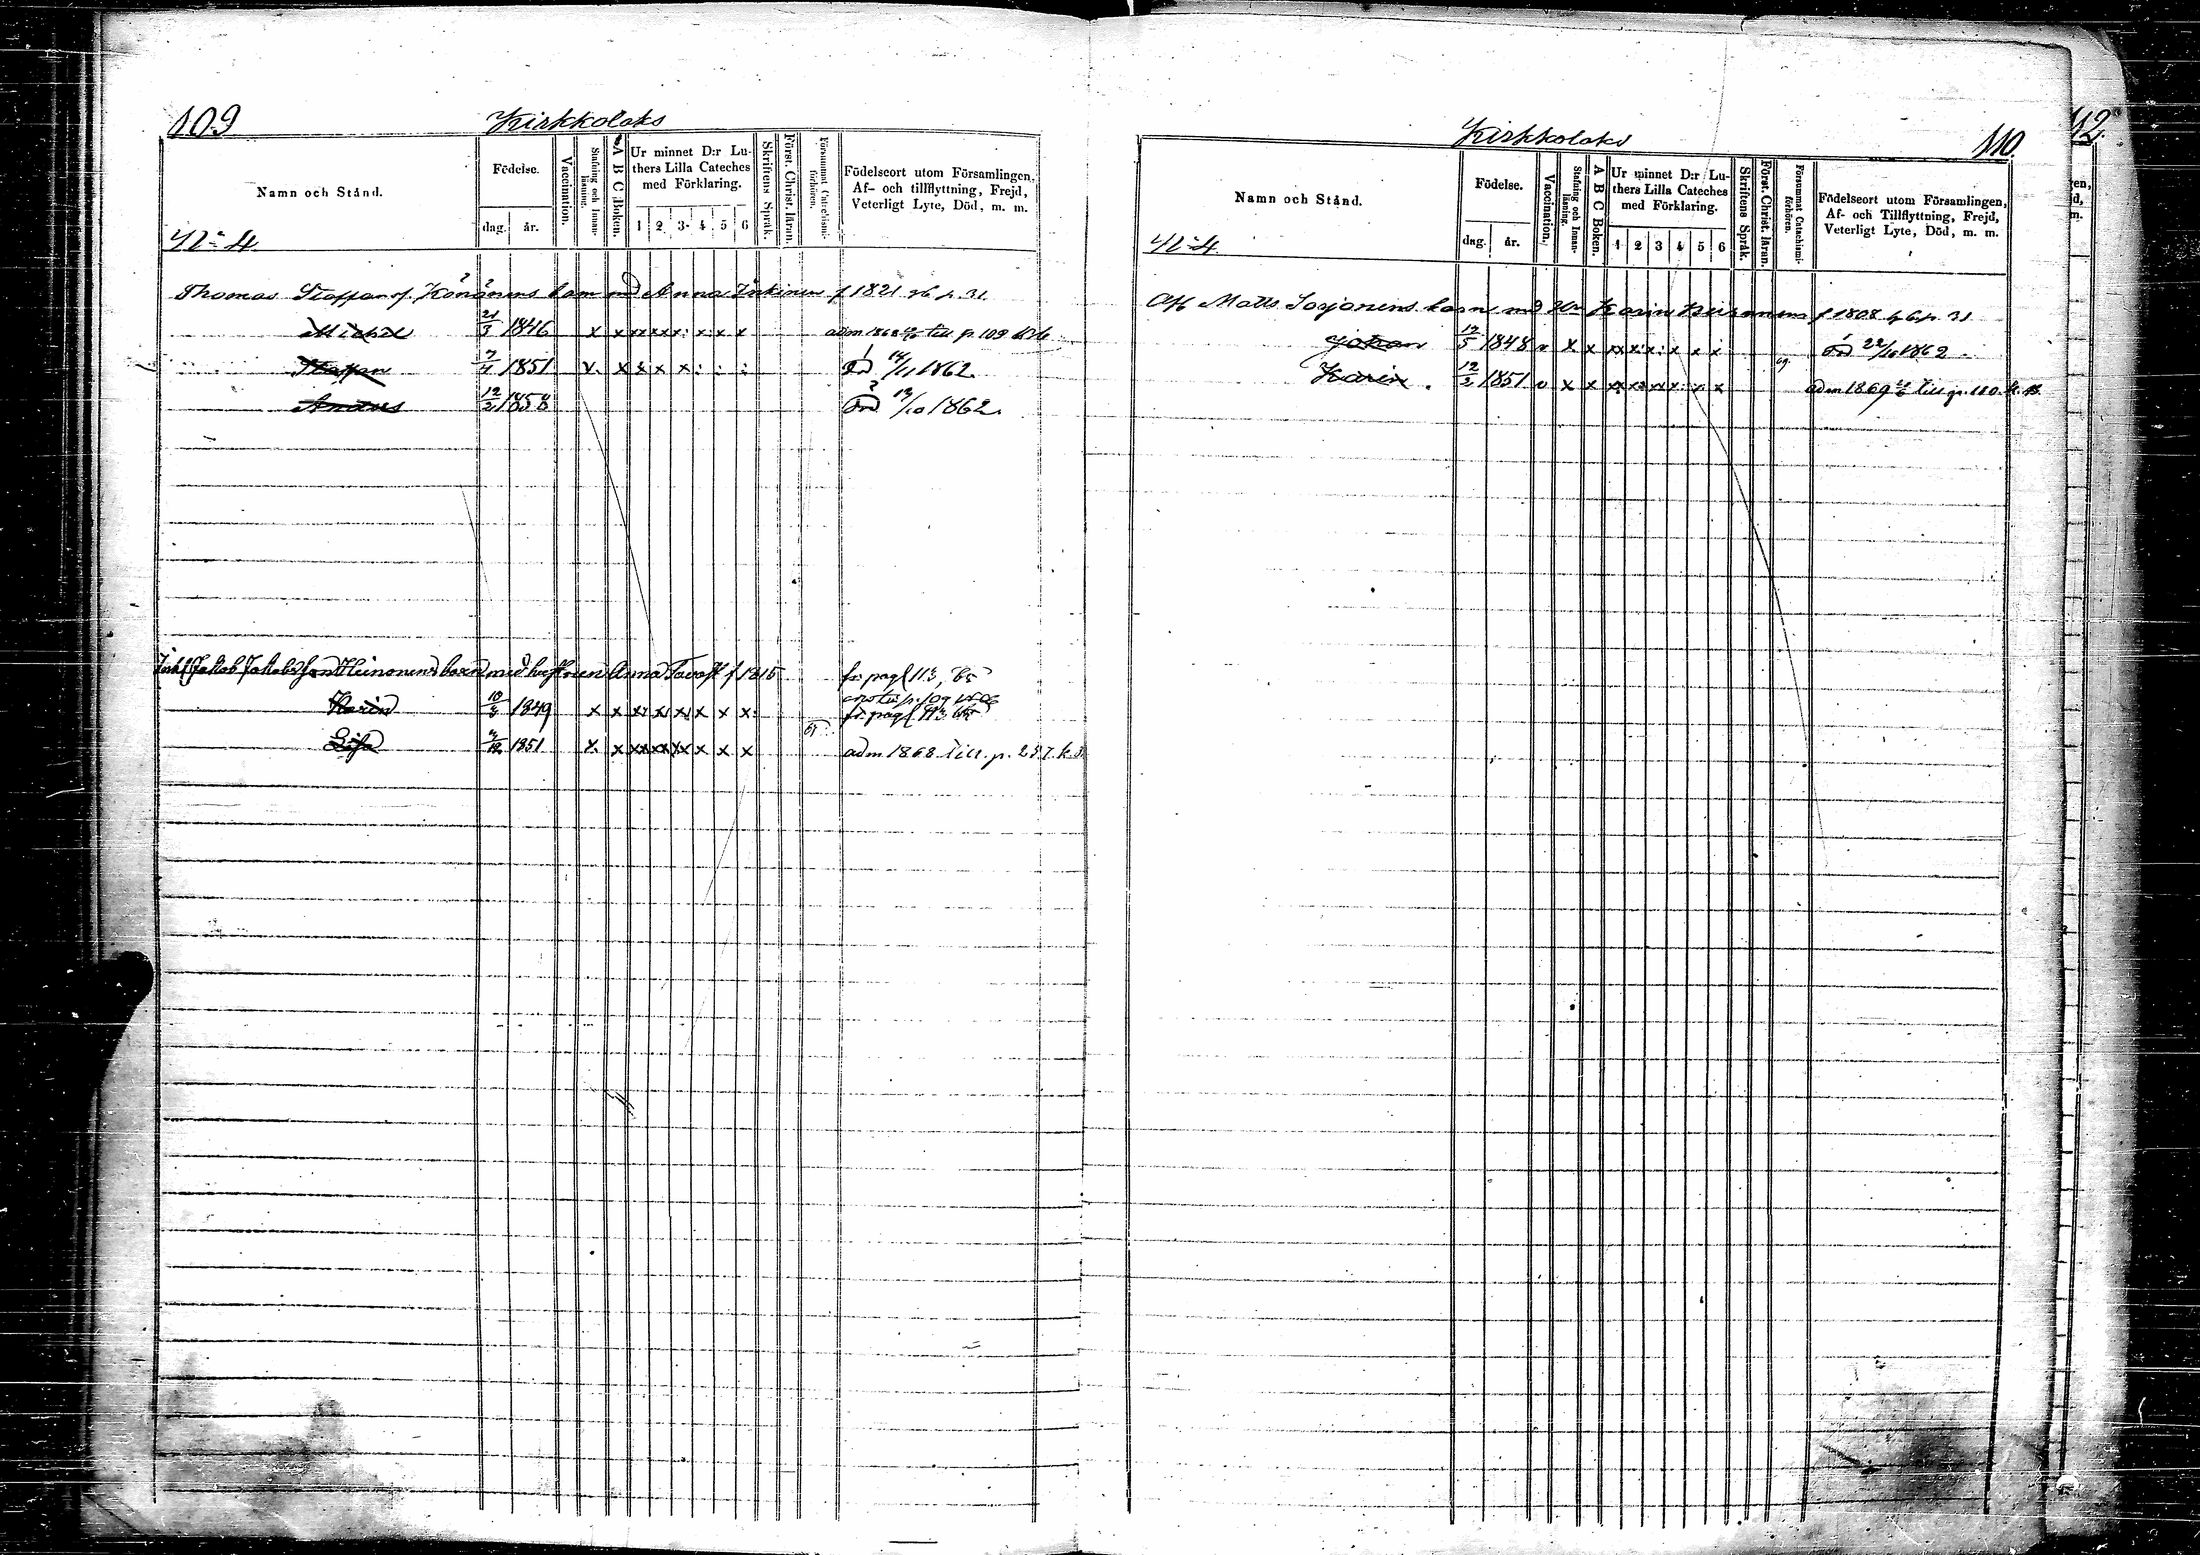 109
Kirkkolaks
Namn och Stånd.
Födelse.
dag. år.
Vaccination.
Stafning och Innanläsning.
A B C Boken.
Ur minnet D:r Luthers Lilla Cateches med Förklaring.
1 2 3 4 5 6
Skriftens Språk.
Först. Christ. läran.
Försummat Catechismiförhören.
Födelseort utom Församlingen, Af- och tillflyttning, Frejd, Veterligt Lyte, Död, m. m.
N:o 4.
Thomas Könönens barn med Anna Inkinen f 1821 p. 31
Michel 21/3 1846 x x x x x x x x adm 1868 till p. 109
Staffan 7/4 1851 x x x x x Död 14/11 1862.
Anders 12/2 1858 Död 13/10 1862.
Jakob Jakobsson Heinonens barn med Anna Tavast f 1815 fr. pag 113,
Karin 10/3 1849 x x x x x x x x fr. pag 113
Lisa 1851 x x x x x x x x adm 1868 till p. 237. k.
Kirkkolaks
110.
Namn och Stånd.
Födelse.
dag. år.
Vaccination.
Stafning och Innanläsning.
A B C Boken.
Ur minnet D:r Luthers Lilla Cateches med Förklaring.
1 2 3 4 5 6
Skriftens Språk.
Först. Christ. läran.
Försummat Catechismiförhören.
Födelseort utom Församlingen, Af- och Tillflyttning, Frejd, Veterligt Lyte, Död, m. m.
N:o 4.
Aff. Matts Sorjonens barn med Karin f 1808 p. 31
Johan 12/5 1848 v x x x x x x x x Död 22/10 1862.
Karin. 12/2 1851 v x x x x x x x x adm 1869 till p. 110.
112.